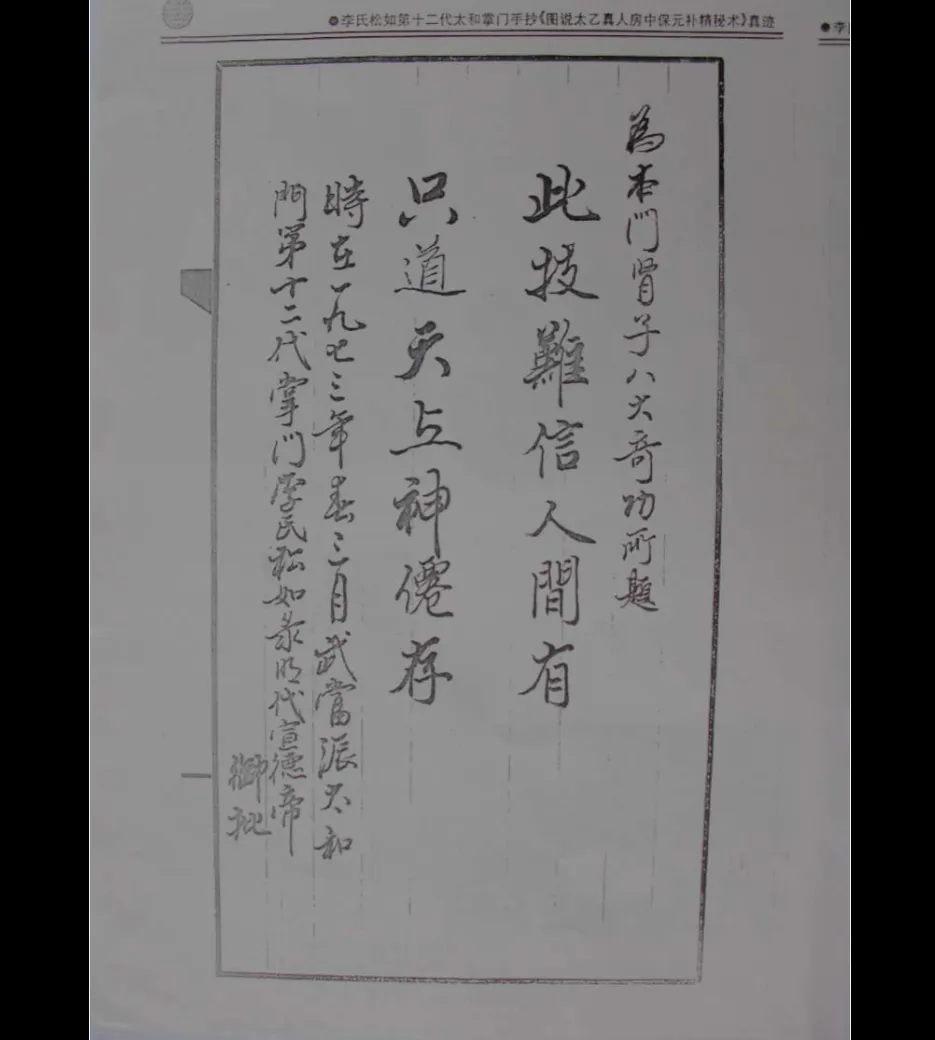 ●李氏松如第十二代太和掌门手抄《图说太乙真人房中保元补精秘术》真迹
●李
為本门肾子八大奇功所題
此技難信人間有
只道天上神僊存
時在一九七三年春三月武當派太和
門第十二代掌门李氏松如录明代宣德帝
御批